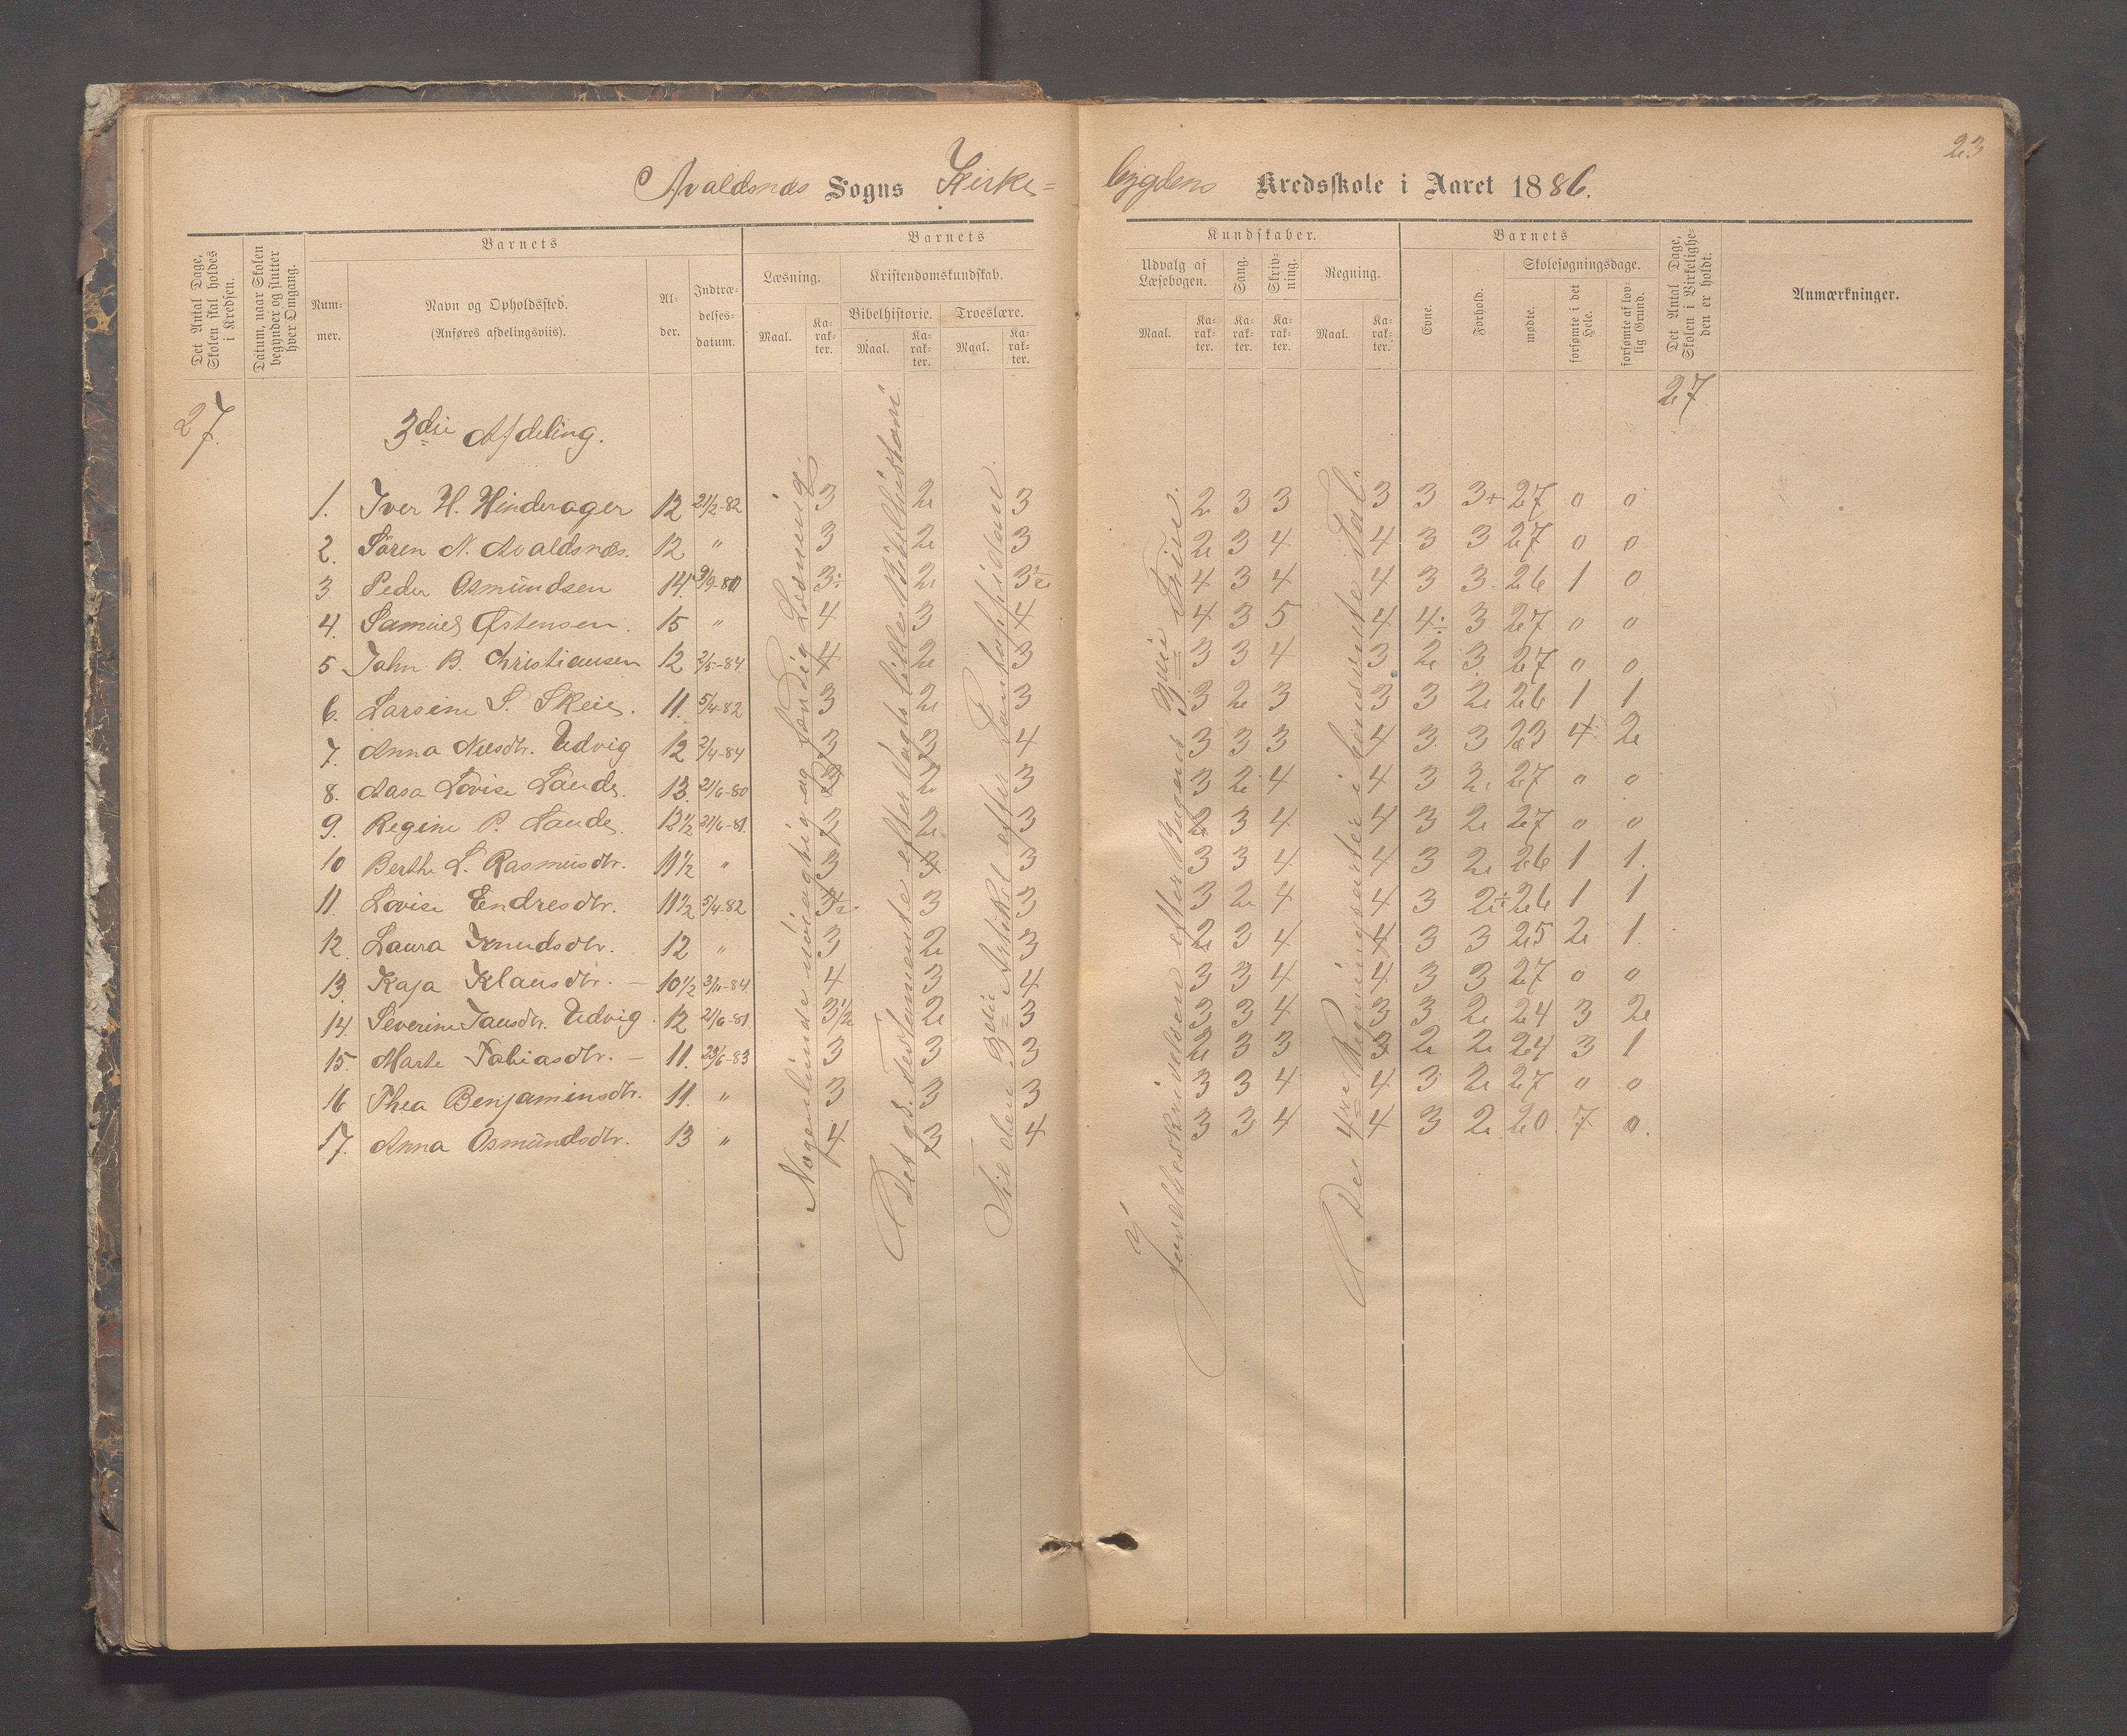 23
Avaldsnæs Sogns Kirke=
bygdens Kredsskole i Aaret 1886.
Det Antal Dage, Skolen skal holdes i Kredsen.
Datum, naar Skolen begynder og slutter hver Omgang.
Barnets
Num-mer.
Navn og Opholdssted.
(Anføres afdelingsviis).
Al-der.
Indtræ-delses-datum.
Barnets
Læsning.
Kristendomskundskab.
Bibelhistorie.
Troeslære.
Maal.
Ka-rak-ter.
Maal.
Ka-rak-ter.
Maal.
Ka-rak-ter.
Kundskaber.
Udvalg af Læsebogen.
Sang.
Skriv-ning.
Regning.
Maal.
Ka-rak-ter.
Ka-rak-ter.
Ka-rak-ter.
Maal.
Ka-rak-ter.
Barnets
Evne.
Forhold.
Skolesøgningsdage.
mødte.
forsømte i det Hele.
forsømte af lov-lig Grund.
Det Antal Dage, Skolen i Virkelighe-den er holdt.
Anmærkninger.
27. 27
3die Afdeling.
1. Iver H. Hinderager 12 21/2-82 3 2 3 2 3 3 3 3 3+ 27 0 0
2. Sören N. Avaldsnæs. 12 " 3 2 3 2 3 4 4 3 3 27 0 0
3. Peder Osmundsen 14. 9/9-80 3÷ 2 3½ 4 3 4 4 3 3. 26 1 0
4. Samuel Østensen. 15 " 4 3 4 4 3 5 4 4÷ 3 27 0 0
5 John B. Christiansen 12 2/5-84. 4 2 3 3 3 4 3 2 3 27 0 0
6. Larsine S. Skeie. 11. 5/4-82 3 2 3 3 2 3 3 3 2 26 1 1
7. Anna Nilsdtr. Udvig 12 2/4-84 3 3 4 3 3 3 4 3 3 23 4 2
8. Aasa Lovise Lande. 13. 21/6-80 2 3 3 2 4 4 3 2 27 0 0
9. Regine P. Lande. 12½ 21/6-81. 3 2 3 2 3 4 4 3 2 27 0 0
10 Berthe L. Rasmusdtr. 11½ " 3 3 3 3 3 4 4 3 2 26 1 1.
11. Lovise Endresdtr. 11½ 5/4-82 3½ 3 3 3 2 4 4 3 2÷ 26 1 1
12. Laura Knudsdtr. 12 " 3 2 3 2 3 4 4 3 3 25 2 1.
13. Kaja Klausdtr. — 10½ 3/11-84 4 3 4 3 3 4 4 3 3 27 0 0
14. Severine Jansdtr. Udvig. 12 21/6-81 3½ 2 3 3 3 4 3 3 2 24 3 2
15. Marte Tobiasdtr. — 11. 23/6-83 3 3 3 2 3 3 3 2 2 24 3 1
16 Thea Benjaminsdtr. 11. " 3 3 3 3 3 4 4 3 2 27 0 0
17. Anna Osmundsdtr. 13 " 4 3 4 3 3 4 4 3 2 20. 7 0.
Nogenlunde nöiagtig og færdig Læsning.
Det gl. Testamente efter Vogts lille Bibelhistorie
Til den 3die Artikel efter Pontoppidan.
Jordbeskrivelsen efter Bogens 3die Trin.
De 4re Regningsarter i benævnte Tal.